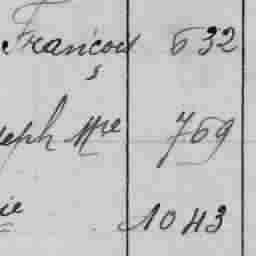 François 632
s
eph Mre 769
ie 1043